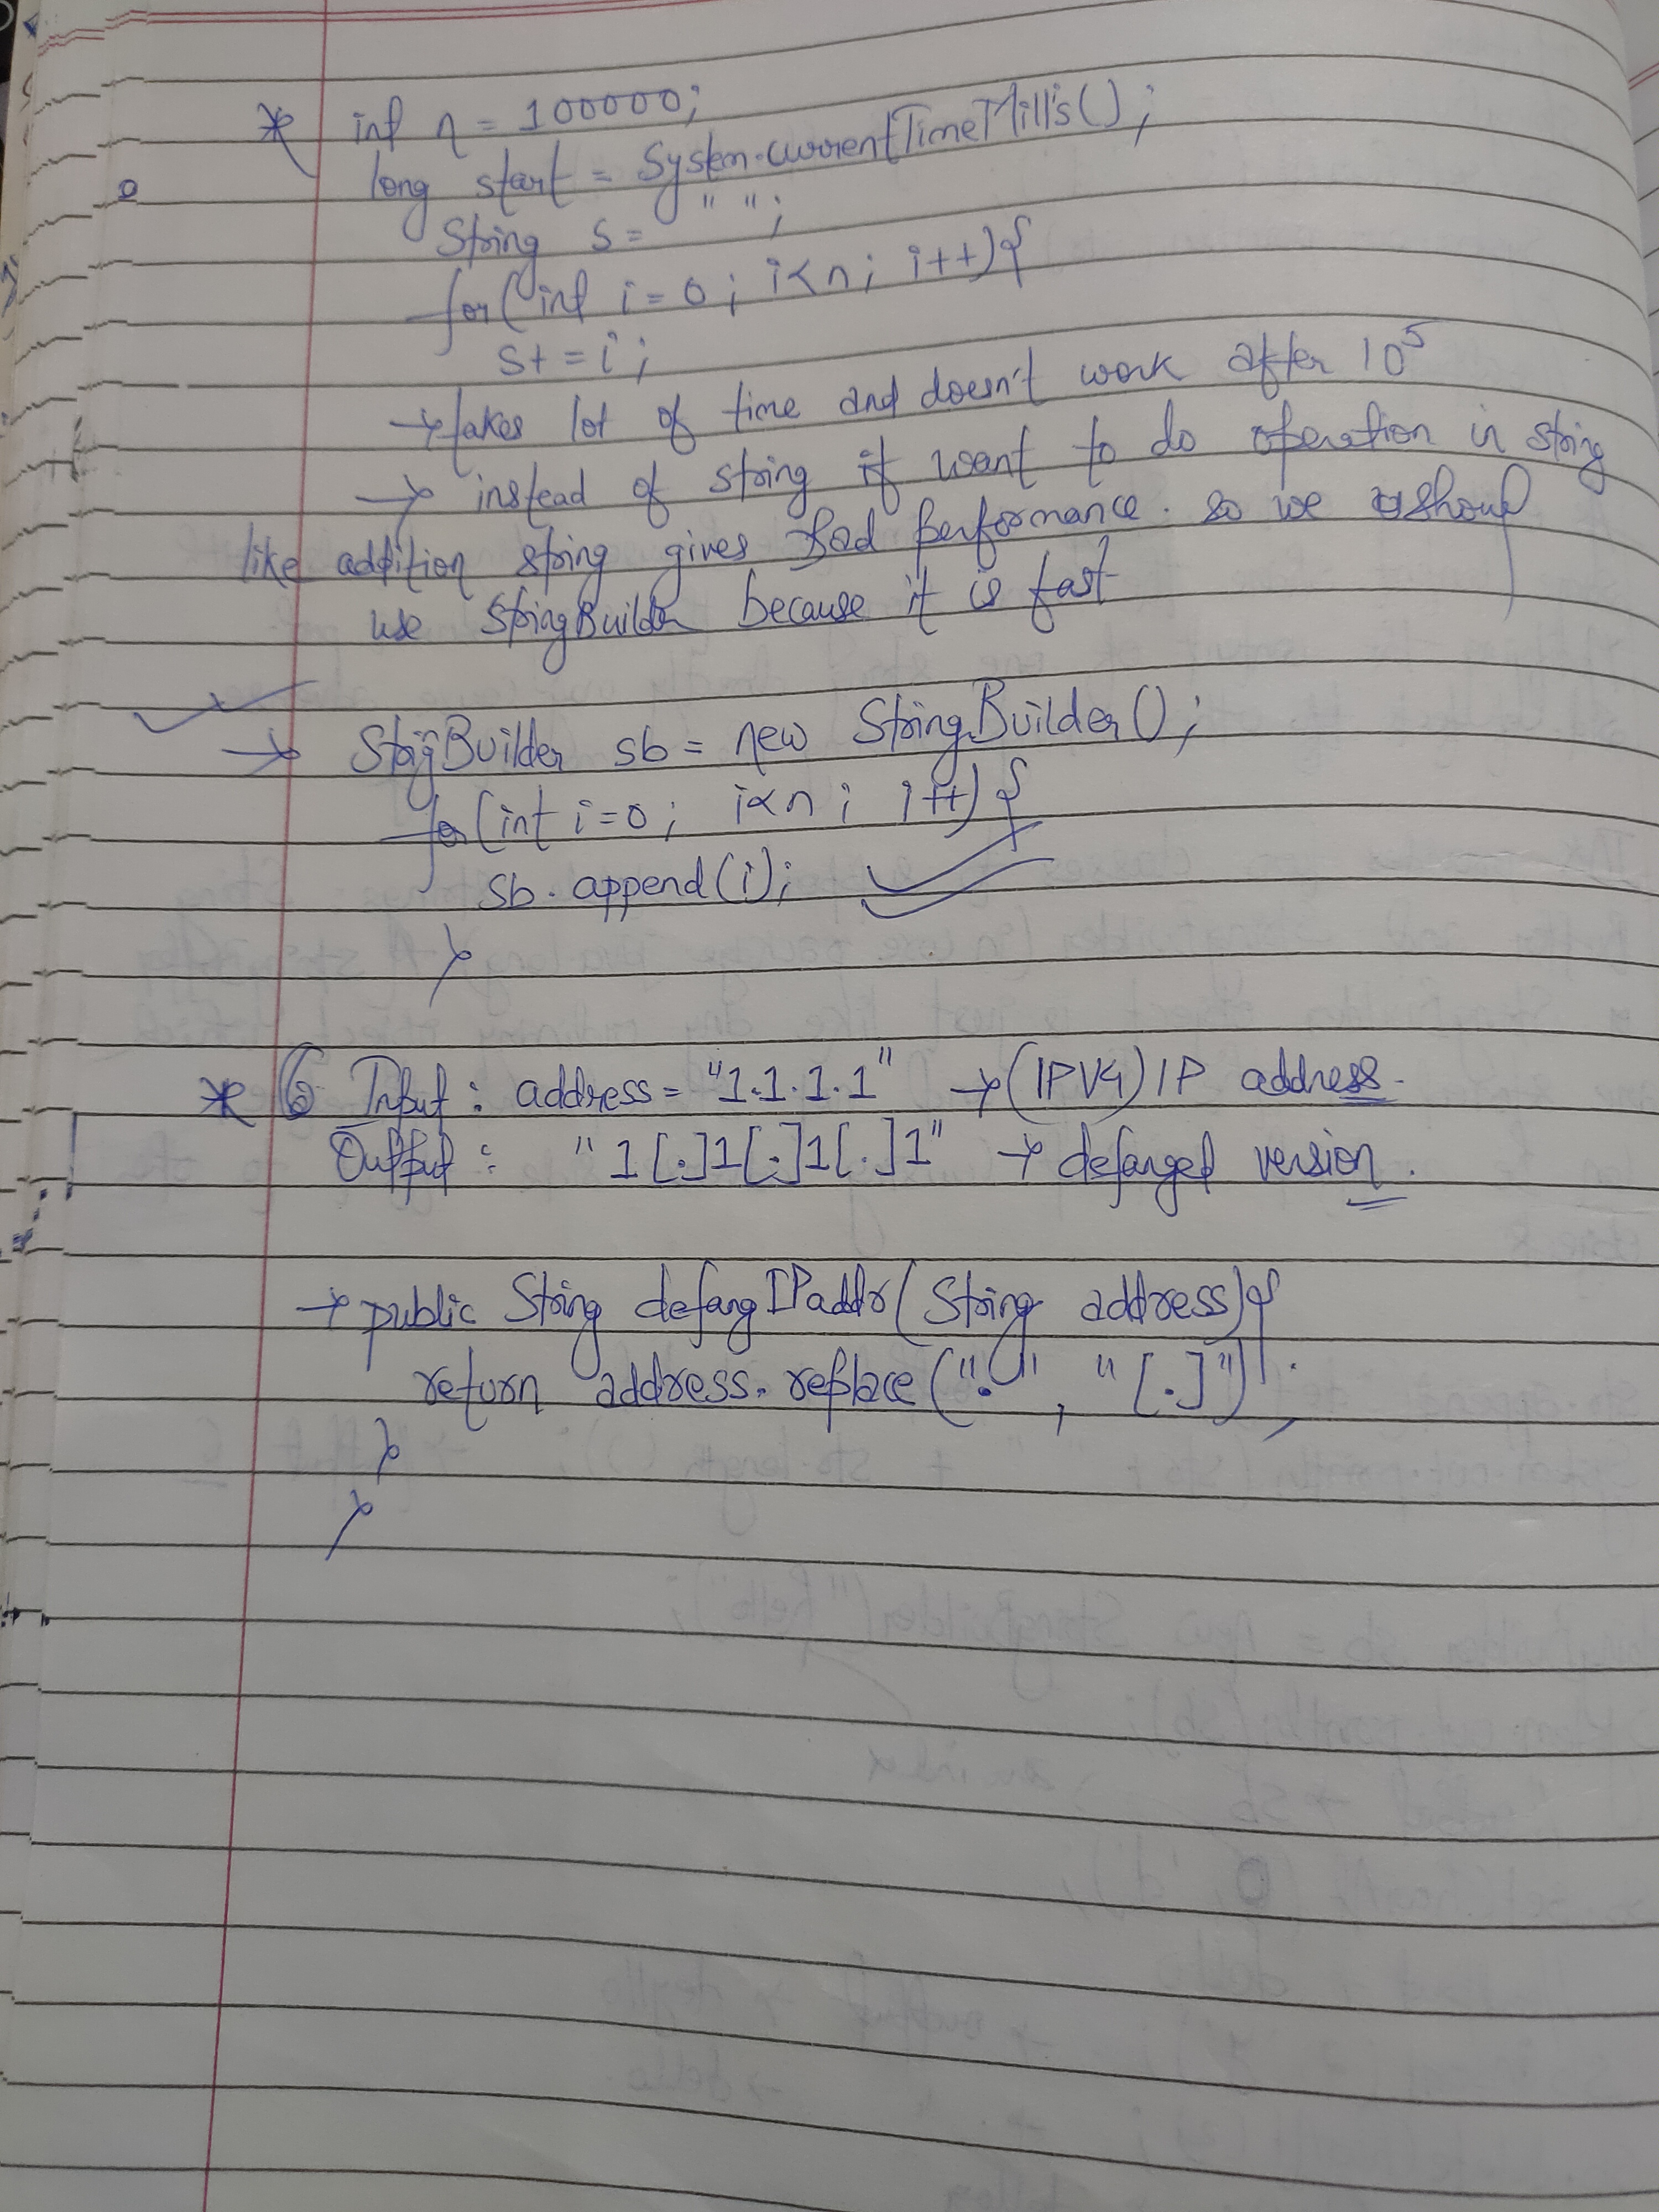 * int n = 100000;
long start = System.currentTimeMills();
String s = " ";
for(int i=0; i<n; i++){
s+=i;
→ takes lot of time and doesn't work after 10^5
→ instead of string if want to do operation in string
like addition string gives bad performance. so we should
use StringBuilder because it is fast
→ StringBuilder sb = new StringBuilder();
for(int i=0; i<n; i++){
sb.append(i);
}
* 6 Input: address = "1.1.1.1" → (IPV4) IP address.
Output: "1[.]1[.]1[.]1" → defanged version.
→ public String defangIPaddr(String address){
return address.replace(".", "[.]");
}
}